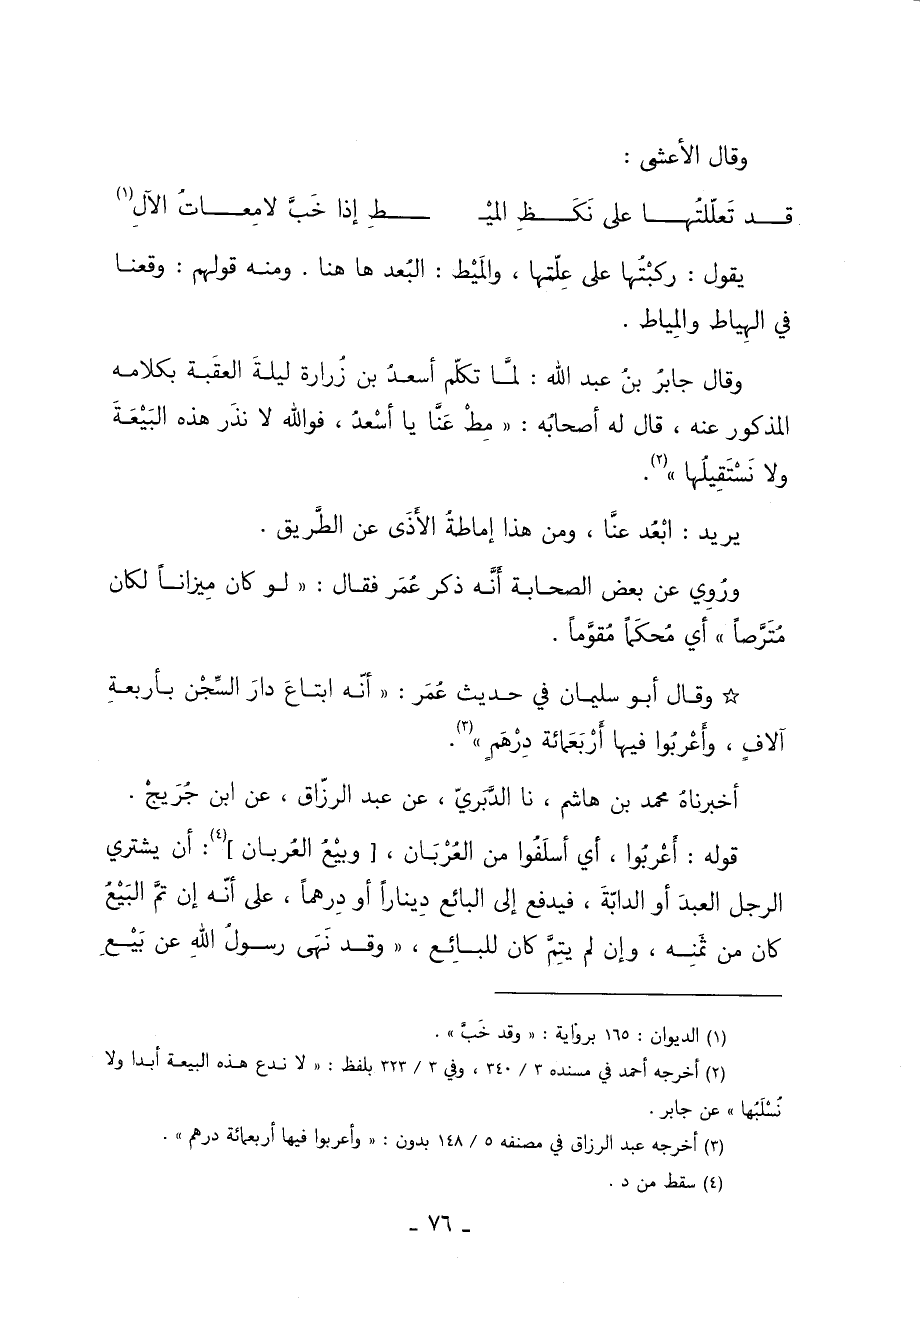 وقال الأعشى :
قـــد تَعلّلتُهـــا على نَكَـــظِ الميْـ ـــطِ إذا خَبَّ لامِعـــاتُ الآلِ(١)
يقول : ركبْتُها على عِلّتها ، والمَيْط : البُعد ها هنا . ومنه قولهم : وقعنا
في الهِياط والمِياط .
وقال جابرُ بنُ عبد الله : لمَّا تكلّم أسعدُ بن زُرارة ليلةَ العقَبة بكلامه
المذكور عنه ، قال له أصحابُه : « مِطْ عَنَّا يا أسْعدُ ، فوالله لا نذَر هذه البَيْعَةَ
ولا نَسْتَقِيلُها »(٢).
يريد : ابْعُد عنَّا ، ومن هذا إماطةُ الأَذَى عن الطَّريق .
ورُوِي عن بعض الصحابة أنَّه ذكر عُمَر فقال : « لو كان مِيزاناً لكان
مُتَرَّصاً » أي مُحكَماً مُقوَّماً .
☆ وقال أبو سليمان في حديث عُمَر : « أنّه ابتاعَ دارَ السِّجْن بأربعةِ
آلافٍ ، وأَعْرِبُوا فيها أَرْبَعَمائة دِرْهَمٍ »(٣).
أخبرناهُ محمد بن هاشم ، نا الدَّبَريّ ، عن عبد الرزّاق ، عن ابن جُرَيجْ .
قوله : أَعْرِبُوا ، أي أسلَفُوا من العُرْبَان ، [ وبيْعُ العُربان ](٤): أن يشتري
الرجل العبدَ أو الدابّةَ ، فيدفع إلى البائع دِيناراً أو دِرهماً ، على أنّه إن تمَّ البَيْعُ
كان من ثمَنِه ، وإن لم يتِمَّ كان للبائِع ، « وقد نَهَى رسولُ اللهِ عن بَيْعِ
(١) الديوان : ١٦٥ برواية : « وقد خَبَّ » .
(٢) أخرجه أحمد في مسنده ٣ / ٣٤٠ ، وفي ٣ / ٣٢٣ بلفظ : « لا ندع هذه البيعة أبدا ولا
نُسْلَبُها » عن جابر .
(٣) أخرجه عبد الرزاق في مصنفه ٥ / ١٤٨ بدون : « وأعربوا فيها أربعمائة درهم » .
(٤) سقط من د .
- ٧٦ -